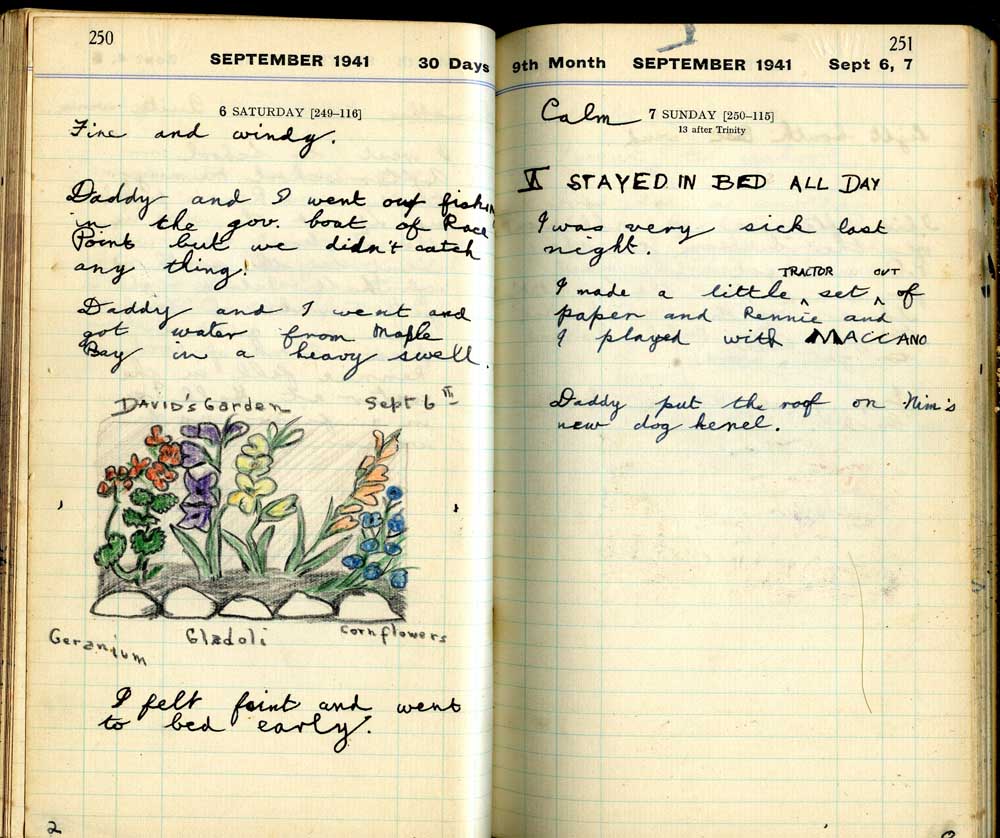 250
SEPTEMBER 1941 30 Days
6 SATURDAY [249–116]
Fine and windy.
Daddy and I went out fishin
in the gov. boat of Race
Point but we didn't catch
any thing!
Daddy and I went and
got water from Maple
Bay in a heavy swell.
DAVID'S Garden Sept 6th
Geranium Gladoli cornflowers
I felt feint and went
to bed early.
2
251
9th Month SEPTEMBER 1941 Sept 6, 7
Calm 7 SUNDAY [250–115]
13 after Trinity
STAYED IN BED ALL DAY
I was very sick last
night.
TRACTOR OUT
I made a little ‸ set ‸ of
paper and Rennie and
I played with MACCANO
Daddy put the roof on Nim's
new dog kenel.